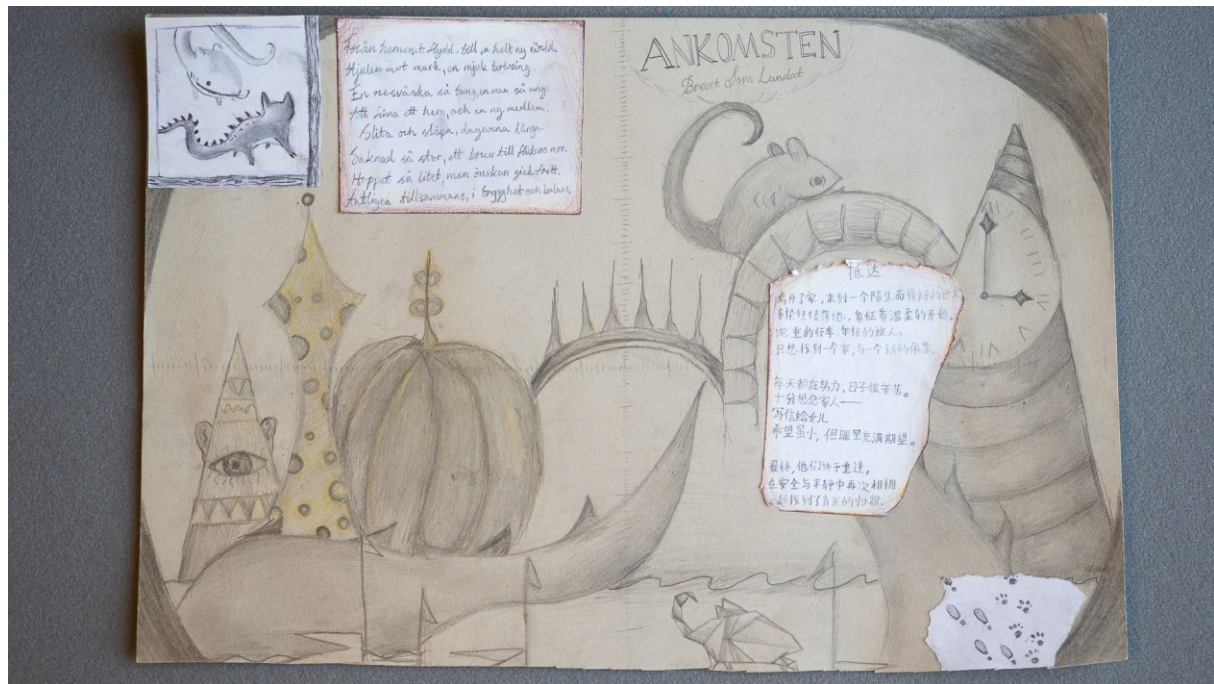 Från hemmet flydd, till en helt ny värld.
Hjulen mot mark, en mjuk
En resväska så tung, en man så ung.
Att finna ett hem, och en ny medlem.
Slita och släpa, dagarna långa.
Saknad så stor, ett brev till flickans mor.
Hoppet så litet, men önskan gick fritt.
Äntligen tillsammans, i trygghet och balans.
ANKOMSTEN
Brevet Som Landat
抵达
离开了家，来到一个陌生而崭新的世
车轮轻轻落地，象征着温柔的开始。
沉重的行李，年轻的旅人。
只想找到一个家，与一个新的依靠。
每天都在努力，日子很辛苦。
十分想念家人——
写信给女儿
希望虽小，但眼里充满期望。
最终，他们终于重逢，
在安全与平静中再次相拥
一起找到了真正的归宿。